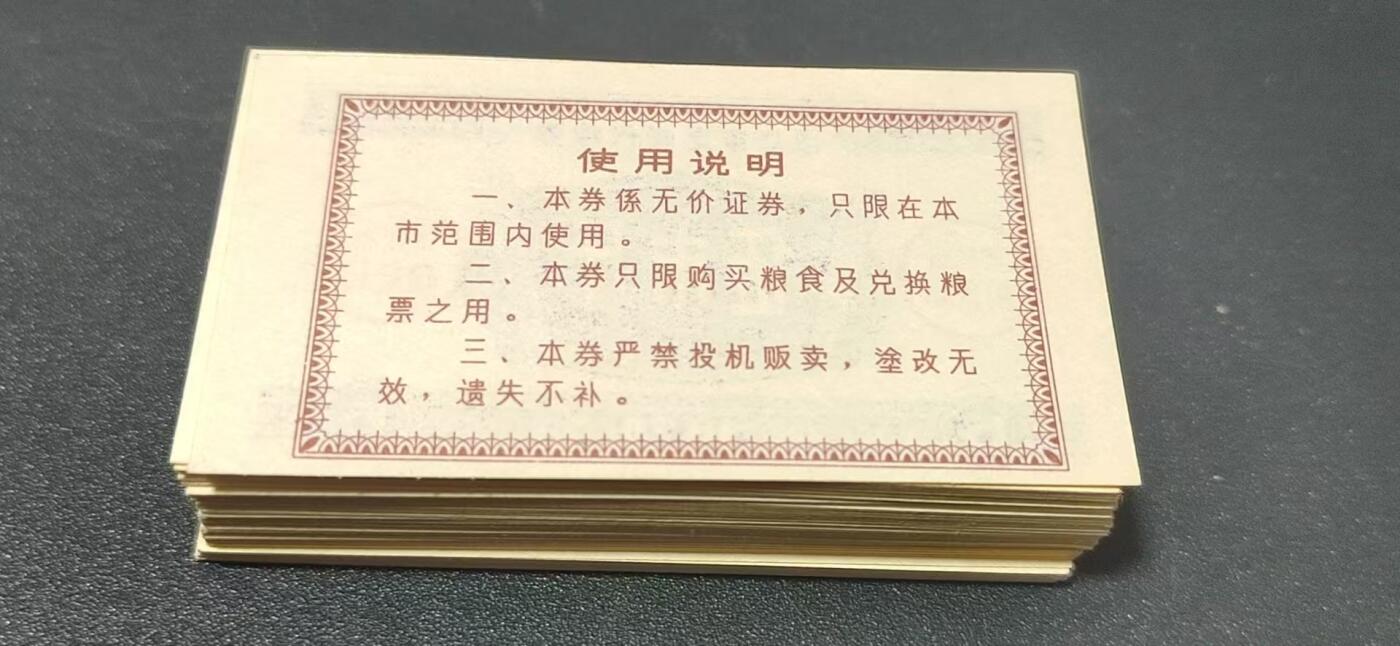 使用说明
一、本券係无价证券，只限在本
市范围内使用。
二、本券只限购买粮食及兑换粮
票之用。
三、本券严禁投机贩卖，塗改无
效，遗失不补。